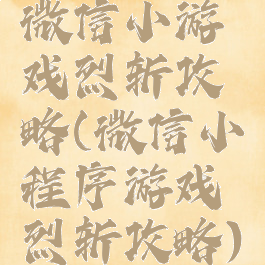 微信小游
戏烈斩攻
略(微信小
程序游戏
烈斩攻略)